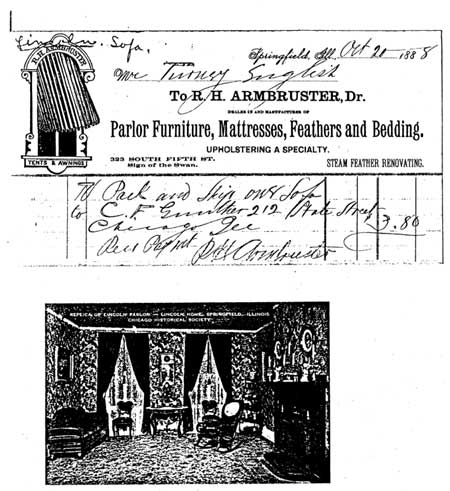 Lincoln Sofa.
Springfield, Ill. Oct 20 1888
Mr Turney English
R. H. ARMBRUSTER
TO R. H. ARMBRUSTER, Dr.
DEALER IN AND MANUFACTURER OF
Parlor Furniture, Mattresses, Feathers and Bedding.
UPHOLSTERING A SPECIALTY.
TENTS & AWNINGS
323 SOUTH FIFTH ST.
Sign of the Swan.
STEAM FEATHER RENOVATING.
To Pack and Ship one Sofa
to C. F. Gunther 212 State Street
Chicago Ill 3.80
Rec Paymt R H Armbruster
REPLICA OF LINCOLN PARLOR — LINCOLN HOME, SPRINGFIELD, ILLINOIS
CHICAGO HISTORICAL SOCIETY